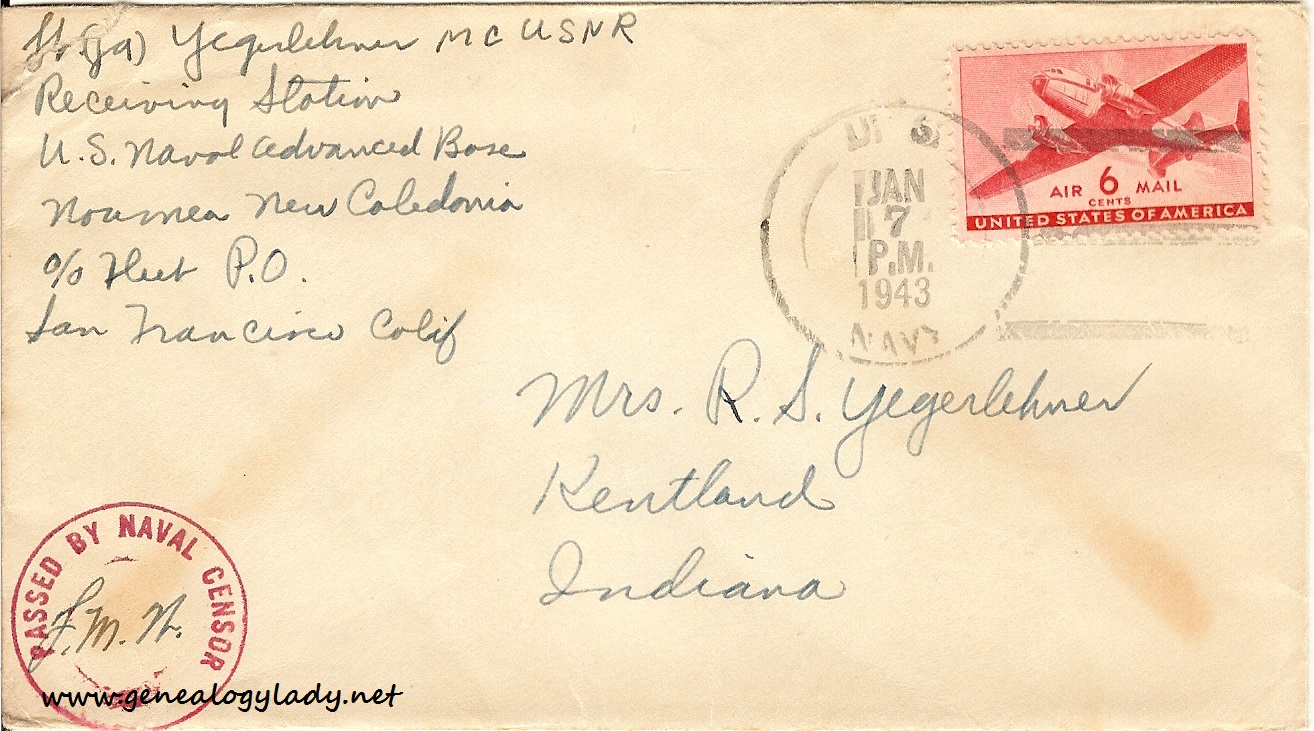 Lt(jg) Yegerlehner MC USNR
Receiving Station
U.S. Naval Advanced Base
Noumea New Caledonia
c/o Fleet P.O.
San Francisco Calif
U. S.
JAN
7
P.M.
1943
NAVY
AIR 6 MAIL
CENTS
UNITED STATES OF AMERICA
Mrs. R. S. Yegerlehner
Kentland
Indiana
PASSED BY NAVAL CENSOR
www.genealogylady.net